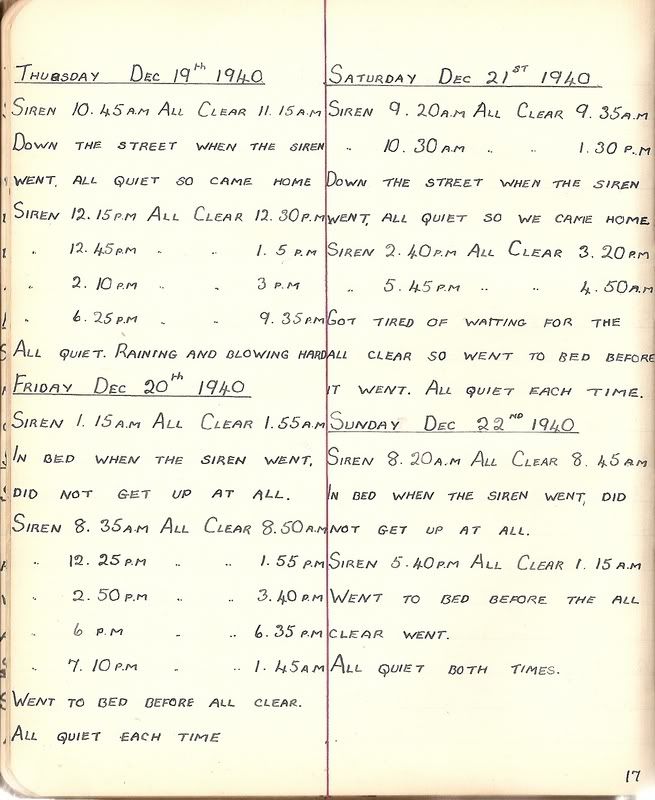 THURSDAY DEC 19th 1940
SIREN 10.45 A.M ALL CLEAR 11.15 A.M
DOWN THE STREET WHEN THE SIREN
WENT, ALL QUIET SO CAME HOME
SIREN 12.15 P.M ALL CLEAR 12.30 P.M
" 12.45 P.M " " 1.5 P.M
" 2.10 P.M " " 3 P.M
" 6.25 P.M " " 9.35 P.M
ALL QUIET. RAINING AND BLOWING HARD
FRIDAY DEC 20th 1940
SIREN 1.15 A.M ALL CLEAR 1.55 A.M
IN BED WHEN THE SIREN WENT,
DID NOT GET UP AT ALL.
SIREN 8.35 A.M ALL CLEAR 8.50 A.M
" 12.25 P.M " " 1.55 P.M
" 2.50 P.M " " 3.40 P.M
" 6 P.M " " 6.35 P.M
" 7.10 P.M " " 1.45 A.M
WENT TO BED BEFORE ALL CLEAR.
ALL QUIET EACH TIME
SATURDAY DEC 21ST 1940
SIREN 9.20 A.M ALL CLEAR 9.35 A.M
" 10.30 A.M " " 1.30 P.M
DOWN THE STREET WHEN THE SIREN
WENT, ALL QUIET SO WE CAME HOME
SIREN 2.40 P.M ALL CLEAR 3.20 P.M
" 5.45 P.M " " 4.50 A.M
GOT TIRED OF WAITING FOR THE
ALL CLEAR SO WENT TO BED BEFORE
IT WENT. ALL QUIET EACH TIME.
SUNDAY DEC 22ND 1940
SIREN 8.20 A.M ALL CLEAR 8.45 A.M
IN BED WHEN THE SIREN WENT, DID
NOT GET UP AT ALL.
SIREN 5.40 P.M ALL CLEAR 1.15 A.M
WENT TO BED BEFORE THE ALL
CLEAR WENT.
ALL QUIET BOTH TIMES.
17